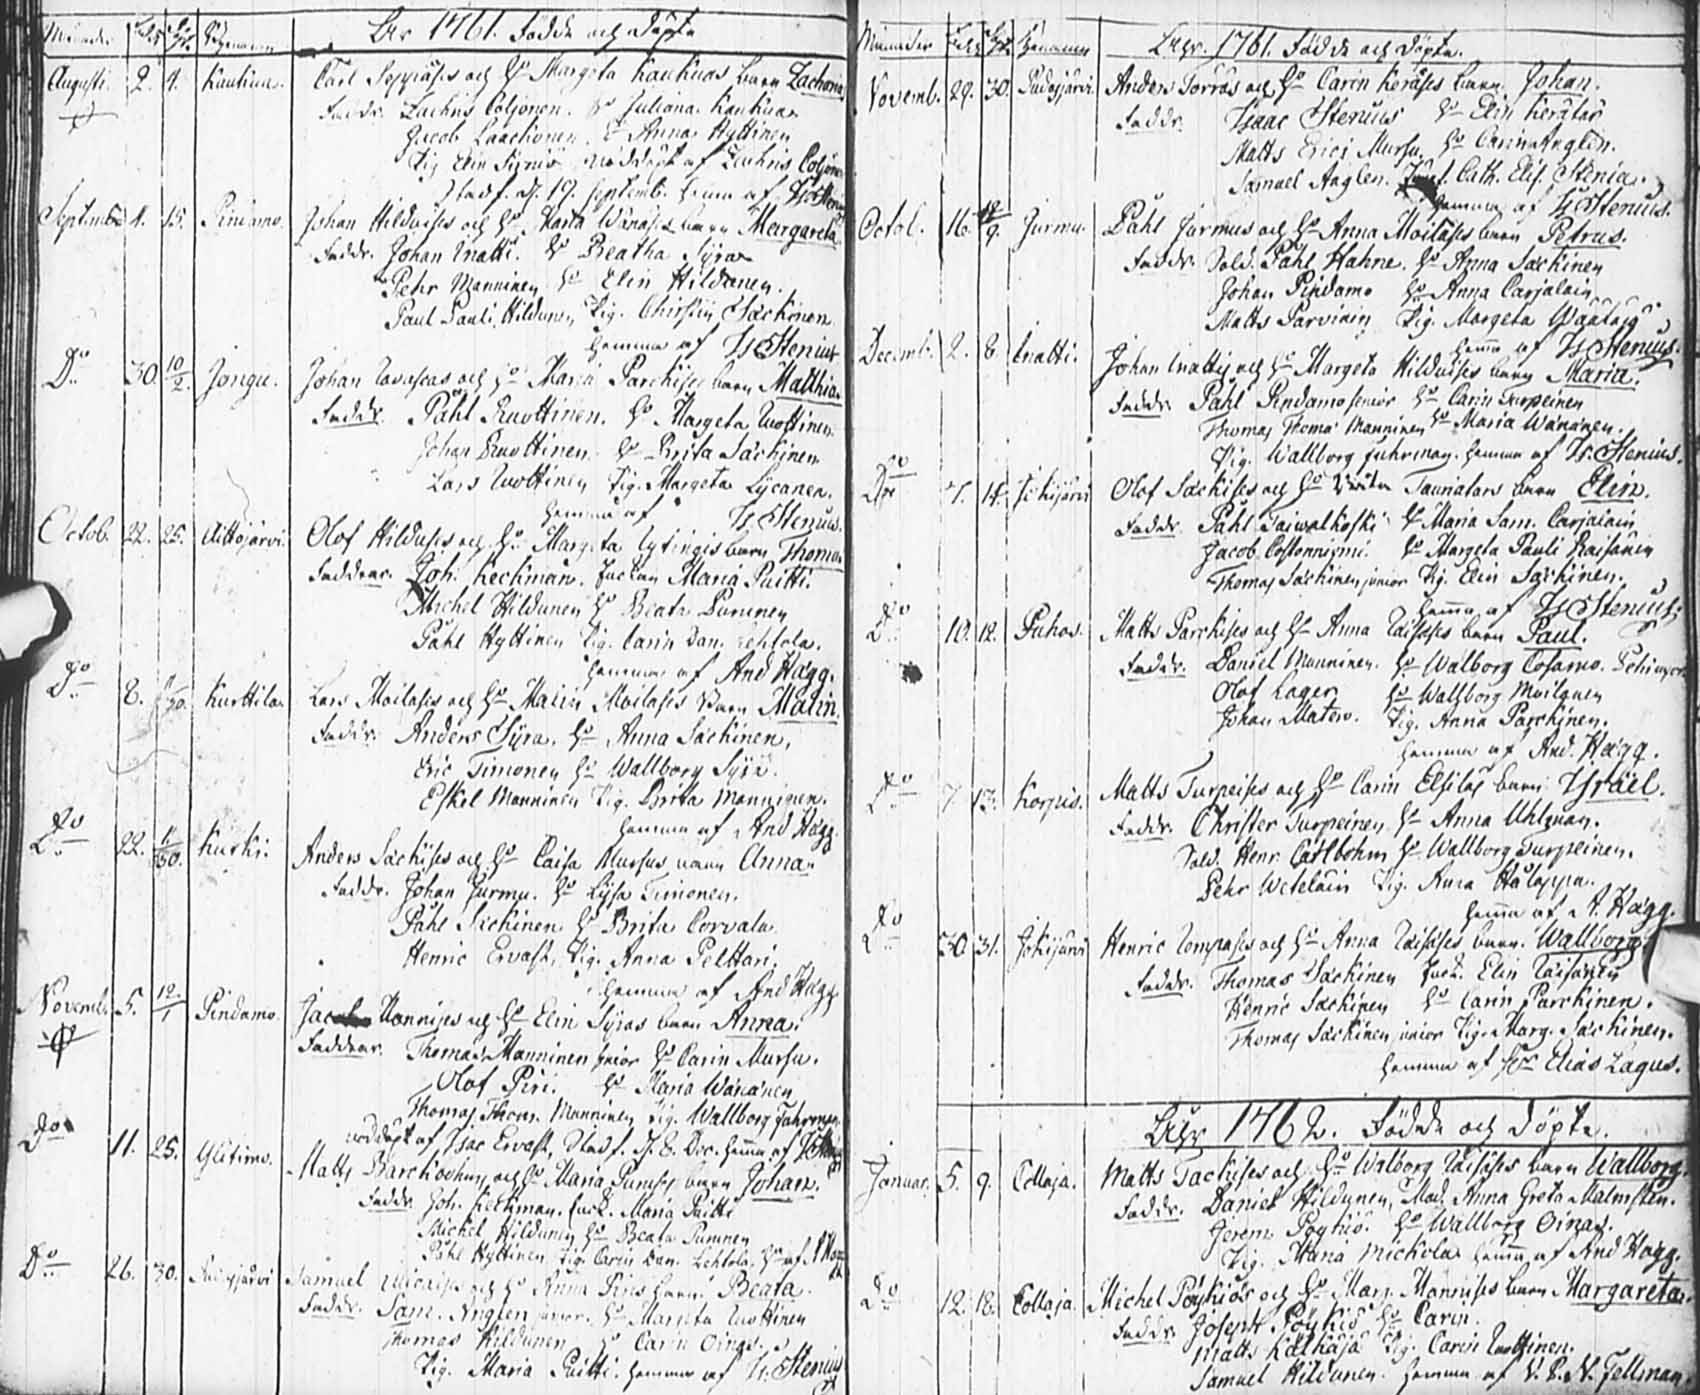 Månader Född Döpt Bynamn Åhr 1761. Födde och Döpte
Augusti. 2. 4. Kaukua. Carl och Ho Margeta Kaukuas barn Zacharias
Faddr. Zachris Coljonen. Ho Juliana Kaukua
Jacob Laachonen. Ho Anna Hyttinen
Pig. Elin nöddöpt af Zachris Coljonen
Stadf. d. 19. Septemb. hemma af Is Stenius
Septemb 4. 15. Pindamo. Johan Hilduises och Ho Maria Wänäses barn Margareta
Faddr. Johan Inatti. Ho Beatha Syra
Pehr Manninen Ho Elin Hildunen.
Paul Pauli Hildunen, Pig. Christin Säckinen
hemma af Is Stenius
Do 30. 10/2. Jongu. Johan och Ho Maria Parckises barn Matthias
Faddr. Påhl Ruottinen. Ho Margeta Ruottinen
Johan Ruottinen. Ho Brita Säckinen
Lars Ruottinen Pig. Margeta Lycanen.
hemma af Is Stenius.
Octob. 22. 25. Aittojärvi. Olof Hilduises och Ho Margeta barn Thomas
Faddrar. Joh. Keckman. Enckan Maria Puitti.
Michel Hildunen Ho Beata Purunen
Påhl Hyttinen Pig. Carin Dan. Lehtola.
hemma af And Hägg.
Do 8. Kurttila. Lars Moilases och Ho Malin Moilases Barn Malin.
Faddr. Anders Syra. Ho Anna Säckinen,
Eric Timonen Ho Wallborg Syri.
Eskel Manninen Pig. Brita Manninen.
hemma af And Hägg.
Do 22. 11/30. Kurki. Anders Säckises och Ho Caisa Mursus barn Anna
Faddr. Johan Jurmu. Ho Lisa Timonen.
Påhl Säckinen Ho Brita Corvala
Henric Ervast, Pig. Anna Pelttari.
hemma af And Hägg
Novemb. 5. 12/1 Pindamo. Jacob Mannises och Ho Elin Syras barn Anna.
Faddrar. Thomas Manninen Ho Carin Mursu.
Olof Piri. Ho Maria Wänänen
Thomas Thom. Manninen Pig. Wallborg Fuhrman.
nöddöpt af Isac Ervast, Stadf. d. 8. Dec. hemma af
Do 11. 25. Ylitirno. Matts och Ho Maria barn Johan.
Faddr. Joh. Keckman. Enck. Maria Puitti
Michel Hildunen Ho Beata Purunen
Påhl Hyttinen. Pig. Carin Dan. Lehtola. af
Do 26. 30. Pudasjärvi Samuel och Ho Anna Piris barn. Beata.
Faddr. Sam. Anglen junior. Ho Margeta Ruottinen
Thomas Hildunen Ho Carin Oinas.
Pig. Maria Puitti. hemma af Is. Stenius
Månader Född Döpt Bynamn Åhr. 1761. Födde och Döpte.
Novemb. 29. 30. Pudasjärvi. Anders Torras och Ho Carin Keräses barn. Johan.
Faddr. Isaac Stenius Ho Elin Kerätär
Matts Erici Mursu. Ho Carin Anglen.
Samuel Anglen. Cath. Elis. Stenia.
hemma af Is Stenius.
Octob. 16. 18/9. Jurmu. Påhl Jurmus och Ho Anna Moilases barn Petrus.
Faddr. Sold. Påhl Hahne. Ho Anna Säckinen
Johan Pindamo Ho Anna Carjalain
Matts Parviain Pig. Margeta
hemma af Is Stenius.
Decemb. 2. 8. Inatti. Johan Inattis och Ho Margeta Hilduises barn Maria.
Faddr. Påhl Pindamo senior Ho Carin Turpeinen
Thomas Thomæ Manninen Ho Maria Wänänen.
Pig. Wallborg Fuhrman. hemma af Is. Stenius.
Do 7. 14. Jokijärvi Olof Säckises och Ho Tauriatars barn Elin.
Faddr. Påhl Taiwalkoski Ho Maria Sam. Carjalain
Jacob Costonniemi. Ho Margeta Pauli Raisänen
Thomas Säckinen junior Pig. Elin Säckinen.
hemma af Is Stenius
Do 10. 12. Puhos. Matts Parckises och Ho Anna Räisäses barn Paul.
Faddr. Daniel Manninen. Ho Walborg Cosamo.
Olof Lager Ho Wallborg Moilanen
Johan Matero. Pig. Anna Parckinen.
hemma af And. Hägg.
Do 7. 13. Korpis. Matts Turpeises och Ho Carin barn Israel.
Faddr. Christer Turpeinen Ho Anna Uhlman.
Sold. Henr. Carlbohm Ho Wallborg Turpeinen.
Pehr Wetelain Pig. Anna
hemma af A. Hägg.
Do 30. 31. Jokijärvi Henric och Ho Anna Räisäses barn. Wallborg.
Faddr. Thomas Säckinen Enck. Elin Räisänen
Henric Säckinen Ho Carin Parckinen.
Thomas Säckinen junior Pig. Marg. Säckinen.
hemma af Hr Elias Lagus.
Åhr 1762. Födde och Döpte.
Januar. 5. 9. Collaja. Matts och Ho Walborg Räisäses barn Wallborg.
Faddr. Daniel Hildunen, Mad. Anna Greta Malmsten.
Jerem Pöykiö. Ho Wallborg Oinas.
Pig. Maria Mickola hemma af And Hägg.
Do 12. 18. Collaja. Michel Pöykiös och Ho Marg. Mannises barn Margareta.
Faddr. Joseph Pöykiö Ho Carin.
Matts Kälkäjä Pig. Carin Ruottinen.
Samuel Hildunen. hemma af V. P. N. Fellman.